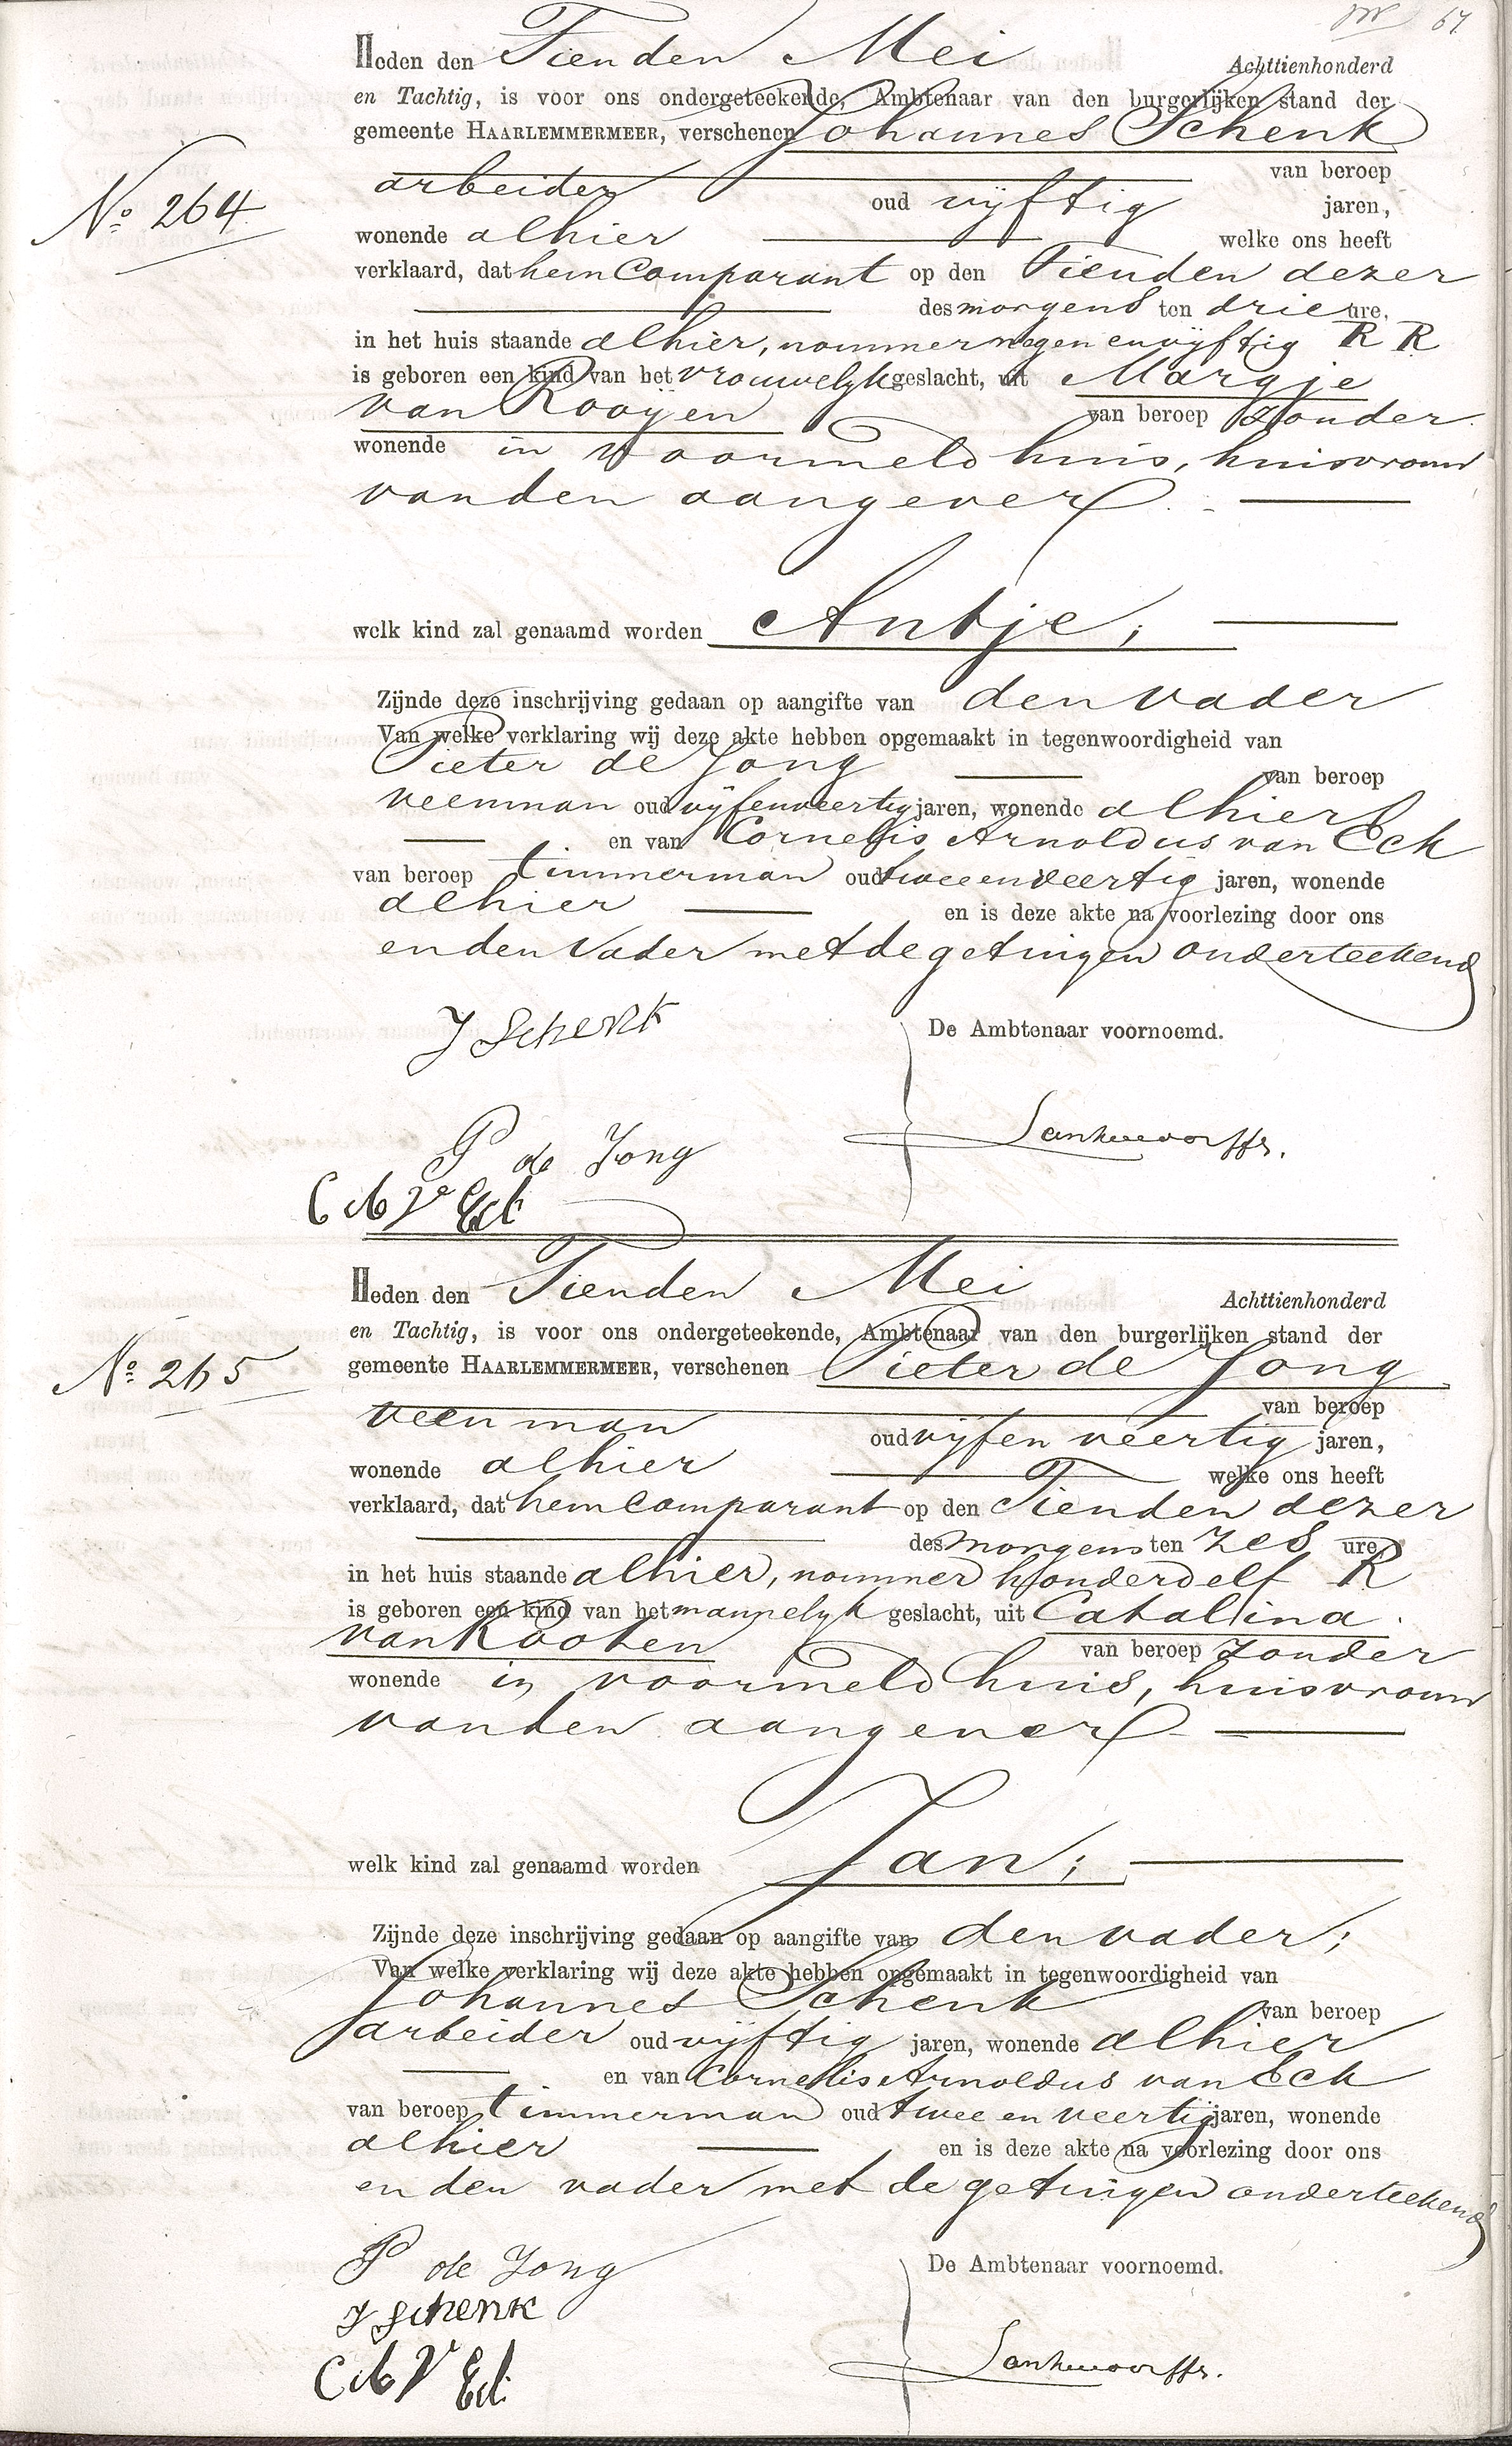 67
Heden den Tienden Mei Achttienhonderd
en Tachtig, is voor ons ondergeteekende, Ambtenaar van den burgerlijken stand der
gemeente HAARLEMMERMEER, verschenen Johannes Schenk
van beroep
arbeider oud vijftig jaren,
wonende alhier welke ons heeft
verklaard, dat hem Comparant op den Tienden dezer
des morgens ten drie ure,
in het huis staande alhier, nommer negen en vijftig R R
is geboren een kind van het vrouwelijk geslacht, uit Margje
van Rooyen van beroep zonder
wonende in voormeld huis, huisvrouw
van den aangever
welk kind zal genaamd worden Antje;
Zijnde deze inschrijving gedaan op aangifte van den vader
Van welke verklaring wij deze akte hebben opgemaakt in tegenwoordigheid van
Pieter de Jong van beroep
veenman oud vijfenveertig jaren, wonende alhier
en van Cornelis Arnoldus van Eck
van beroep timmerman oud twee en veertig jaren, wonende
alhier en is deze akte na voorlezing door ons
en den Vader met de getuigen onderteekend
No. 264
J Schenk
De Ambtenaar voornoemd.
P de Jong
C A V Eck
Heden den Tienden Mei Achttienhonderd
en Tachtig, is voor ons ondergeteekende, Ambtenaar van den burgerlijken stand der
gemeente HAARLEMMERMEER, verschenen Pieter de Jong
van beroep
veenman oud vijf en veertig jaren,
wonende alhier welke ons heeft
verklaard, dat hem comparant op den Tienden dezer
des morgens ten zes ure
in het huis staande alhier, nommer honderd elf R
is geboren een kind van het mannelijk geslacht, uit Catalina
van Rooten van beroep zonder
wonende in voormeld huis, huisvrouw
van den aangever
welk kind zal genaamd worden Jan;
Zijnde deze inschrijving gedaan op aangifte van den vader;
Van welke verklaring wij deze akte hebben opgemaakt in tegenwoordigheid van
Johannes Schenk van beroep
arbeider oud vijftig jaren, wonende alhier
en van Cornelis Arnoldus van Eck
van beroep timmerman oud twee en veertig jaren, wonende
alhier en is deze akte na voorlezing door ons
en den vader met de getuigen onderteekend
No. 265
P de Jong
De Ambtenaar voornoemd.
J Schenk
C A V Eck